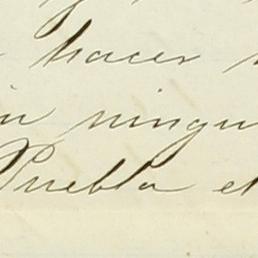 hacer
ningu
Puebla el